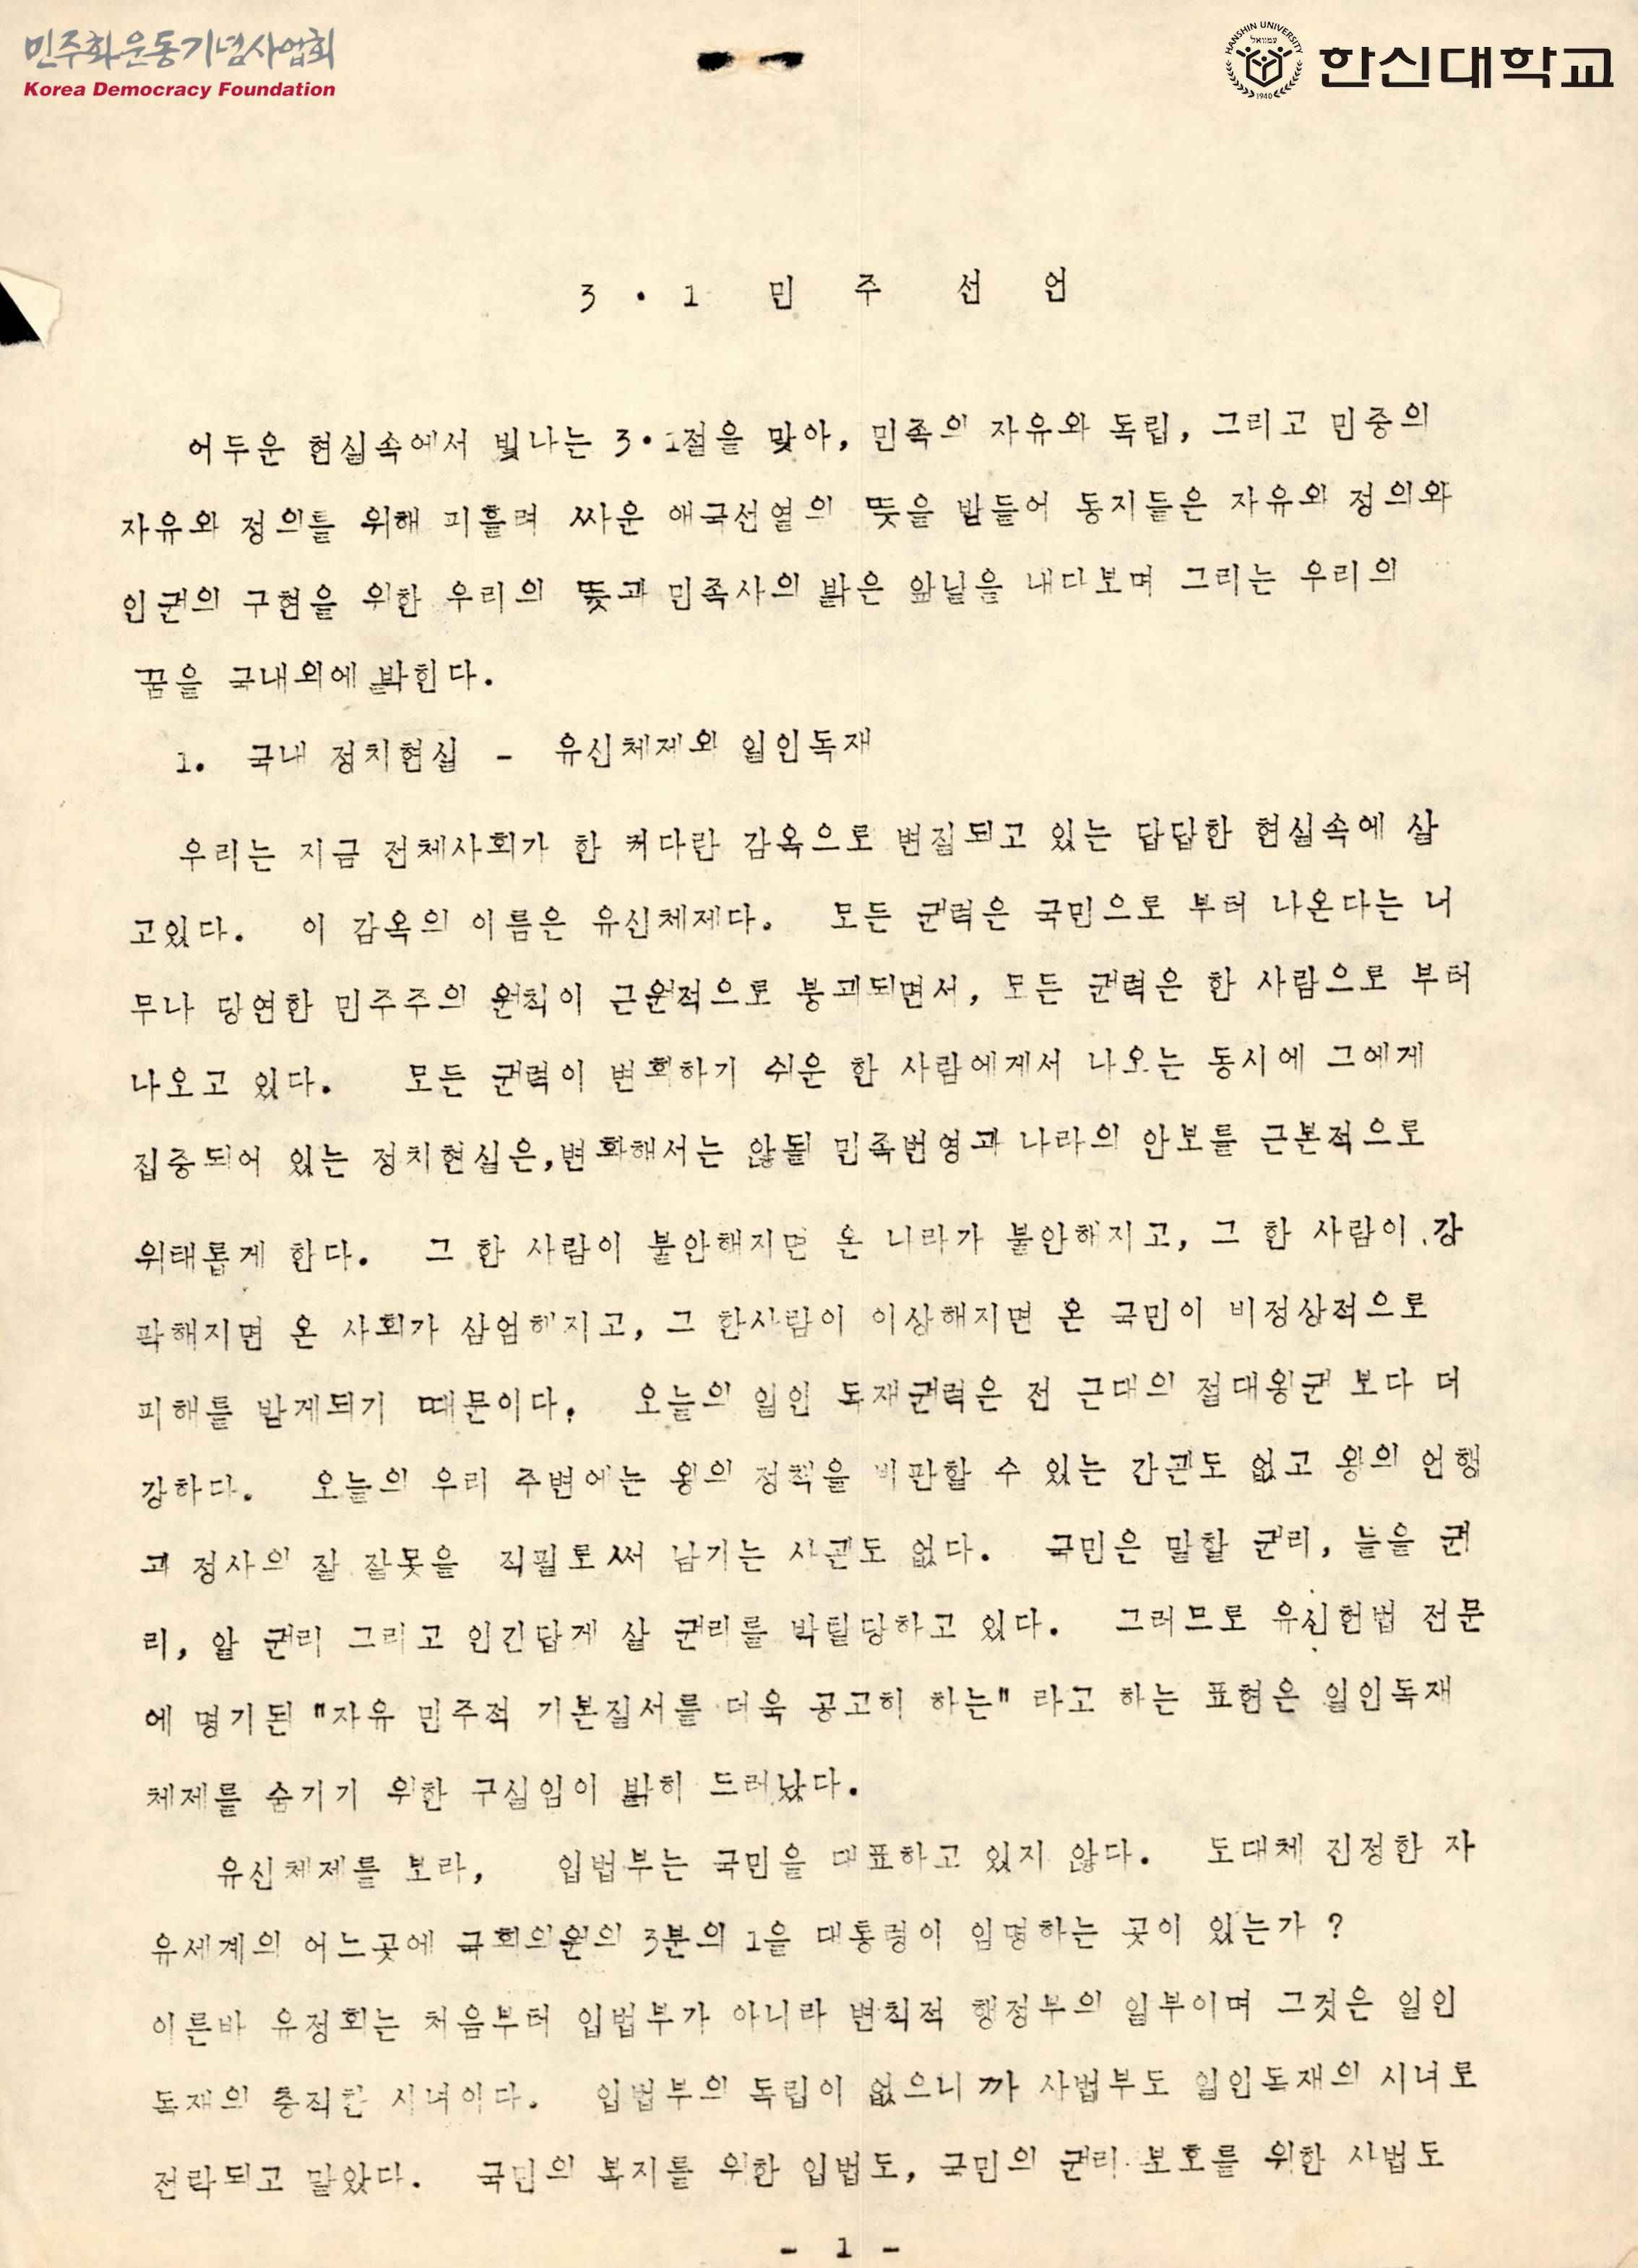 민주화운동기념사업회
Korea Democracy Foundation
HANSHIN UNIVERSITY
1940
한신대학교
3 · 1 민 주 선 언
어두운 현실속에서 빛나는 3·1절을 맞아, 민족의 자유와 독립, 그리고 민중의
자유와 정의를 위해 피흘려 싸운 애국선열의 뜻을 받들어 동지들은 자유와 정의와
인권의 구현을 위한 우리의 뜻과 민족사의 밝은 앞날을 내다보며 그리는 우리의
꿈을 국내외에 밝힌다.
1. 국내 정치현실 - 유신체제와 일인독재
우리는 지금 전체사회가 한 커다란 감옥으로 변질되고 있는 답답한 현실속에 살
고있다. 이 감옥의 이름은 유신체제다. 모든 권력은 국민으로 부터 나온다는 너
무나 당연한 민주주의 원칙이 근원적으로 붕괴되면서, 모든 권력은 한 사람으로 부터
나오고 있다. 모든 권력이 변화하기 쉬운 한 사람에게서 나오는 동시에 그에게
집중되어 있는 정치현실은,변화해서는 않될 민족번영과 나라의 안보를 근본적으로
위태롭게 한다. 그 한 사람이 불안해지면 온 나라가 불안해지고, 그 한 사람이 강
곽해지면 온 사회가 삼엄해지고, 그 한사람이 이상해지면 온 국민이 비정상적으로
피해를 받게되기 때문이다. 오늘의 일인 독재권력은 전 근대의 절대왕권 보다 더
강하다. 오늘의 우리 주변에는 왕의 정책을 비판할 수 있는 간관도 없고 왕의 언행
과 정사의 잘 잘못을 직필로써 남기는 사관도 없다. 국민은 말할 권리, 들을 권
리, 알 권리 그리고 인간답게 살 권리를 박탈당하고 있다. 그러므로 유신헌법 전문
에 명기된 "자유 민주적 기본질서를 더욱 공고히 하는" 라고 하는 표현은 일인독재
체제를 숨기기 위한 구실임이 밝히 드러났다.
유신체제를 보라, 입법부는 국민을 대표하고 있지 않다. 도대체 진정한 자
유세계의 어느곳에 국회의원의 3분의 1을 대통령이 임명하는 곳이 있는가 ?
이른바 유정회는 처음부터 입법부가 아니라 변칙적 행정부의 일부이며 그것은 일인
독재의 충직한 시녀이다. 입법부의 독립이 없으니 까 사법부도 일인독재의 시녀로
전락되고 말았다. 국민의 복지를 위한 입법도, 국민의 권리 보호를 위한 사법도
- 1 -